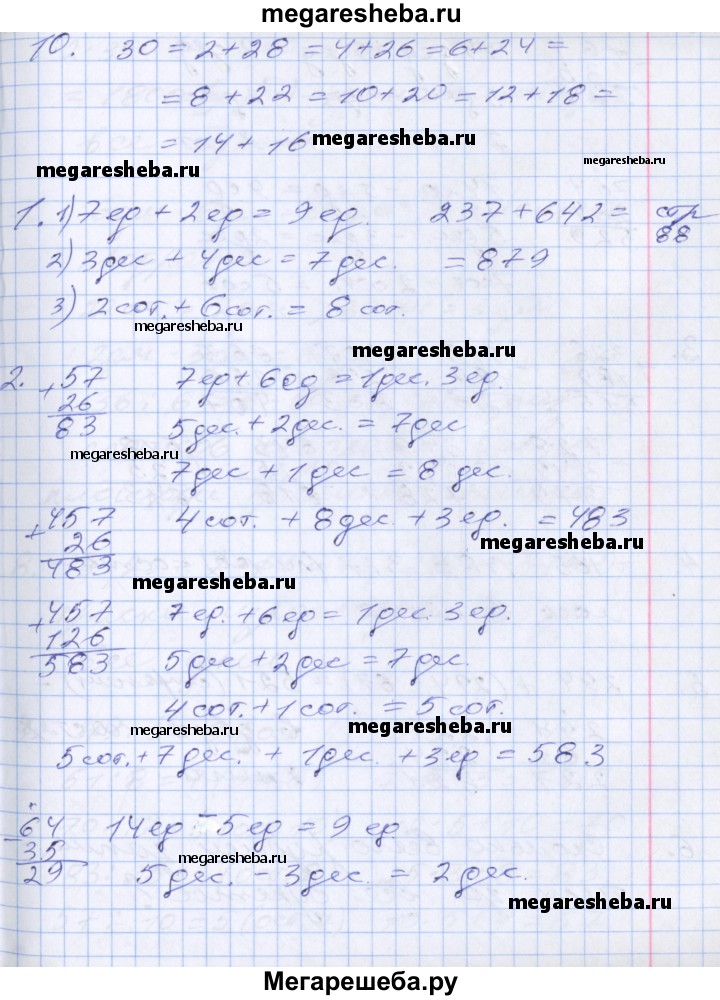 megaresheba.ru
10. 30 = 2 + 28 = 4 + 26 = 6 + 24 =
= 8 + 22 = 10 + 20 = 12 + 18 =
= 14 + 16 megaresheba.ru
megaresheba.ru megaresheba.ru
1. 1) 7 ед + 2 ед = 9 ед. 237 + 642 = стр 88
2) 3 дес + 4 дес = 7 дес. = 879
3) 2 сот. + 6 сот. = 8 сот.
megaresheba.ru
megaresheba.ru
2. + 57 7 ед + 6 ед = 1 дес. 3 ед.
26
83 5 дес. + 2 дес. = 7 дес
megaresheba.ru
7 дес + 1 дес = 8 дес.
+ 457 4 сот. + 8 дес. + 3 ед. = 483
26 megaresheba.ru
483
megaresheba.ru
+ 457 7 ед. + 6 ед = 1 дес. 3 ед.
126
583 5 дес + 2 дес = 7 дес.
4 сот. + 1 сот. = 5 сот.
megaresheba.ru megaresheba.ru
5 сот. + 7 дес. + 1 дес. + 3 ед = 583
- 64 14 ед - 5 ед = 9 ед
35
megaresheba.ru
29 5 дес. - 3 дес. = 2 дес.
megaresheba.ru
Мегарешеба.ру